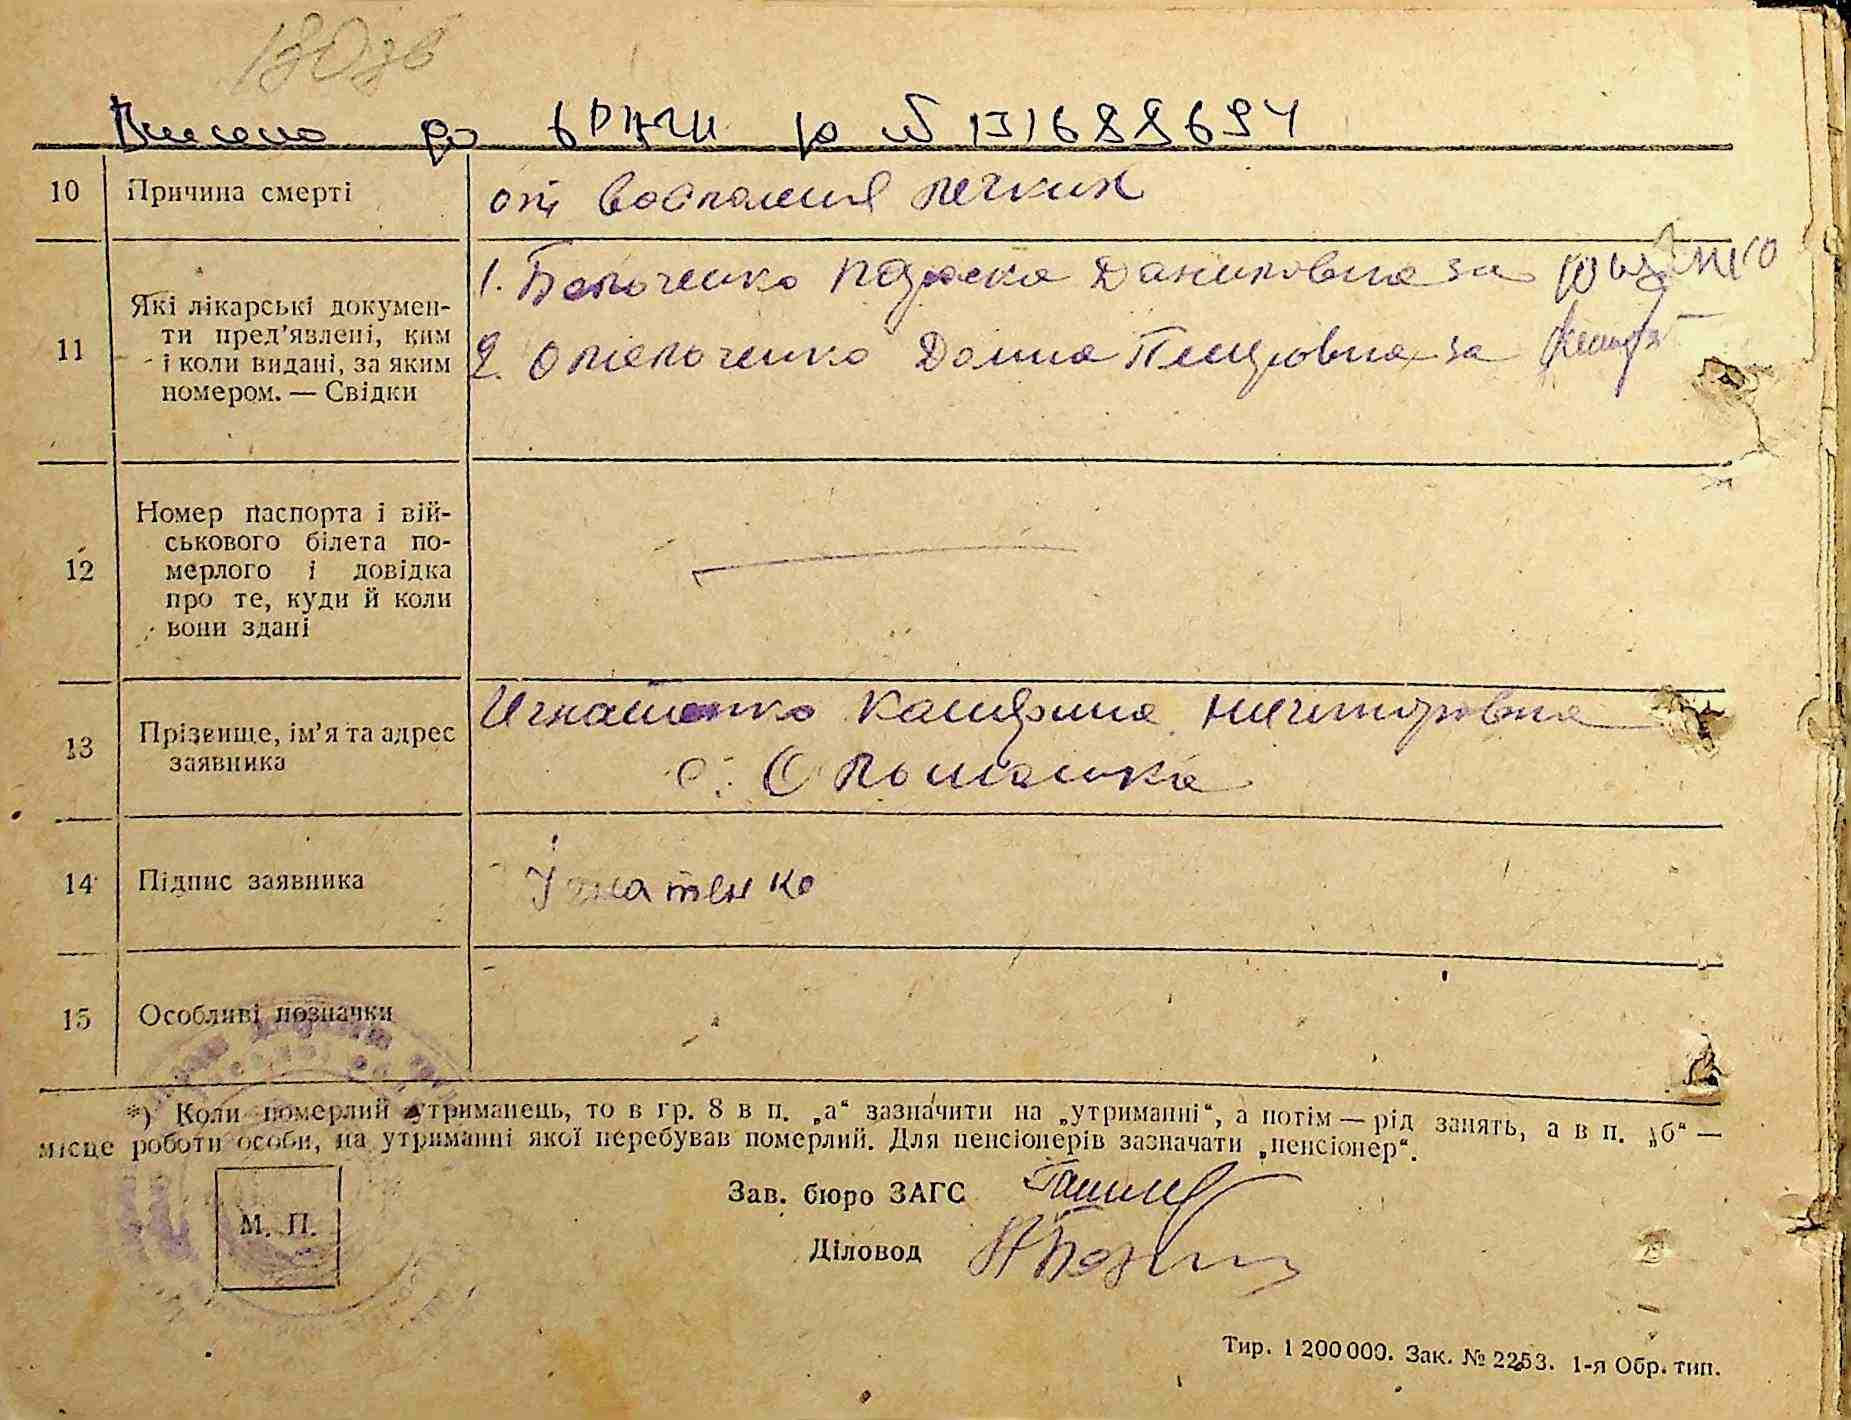 Внесено до
10 Причина смерті
от воспаления легких
11 Які лікарські докумен-
ти пред'явлені, ким
і коли видані, за яким
номером. — Свідки
1. Параска Даниловна за
2. Омельченко Домна Петровна за
12 Номер паспорта і вій-
ськового білета по-
мерлого і довідка
про те, куди й коли
вони здані
13 Прізвище, ім'я та адрес
заявника
Игнатенко Катерина Ничипоровна
с. Опошанка
14 Підпис заявника
Ігнатенко
15 Особливі позначки
*) Коли померлий утриманець, то в гр. 8 в п. „а“ зазначити на „утриманні“, а потім — рід занять, а в п. „б“ —
місце роботи особи, на утриманні якої перебував померлий. Для пенсіонерів зазначати „пенсіонер“.
Зав. бюро ЗАГС
М. П.
Діловод
Тир. 1 200 000. Зак. № 2253. 1-я Обр. тип.